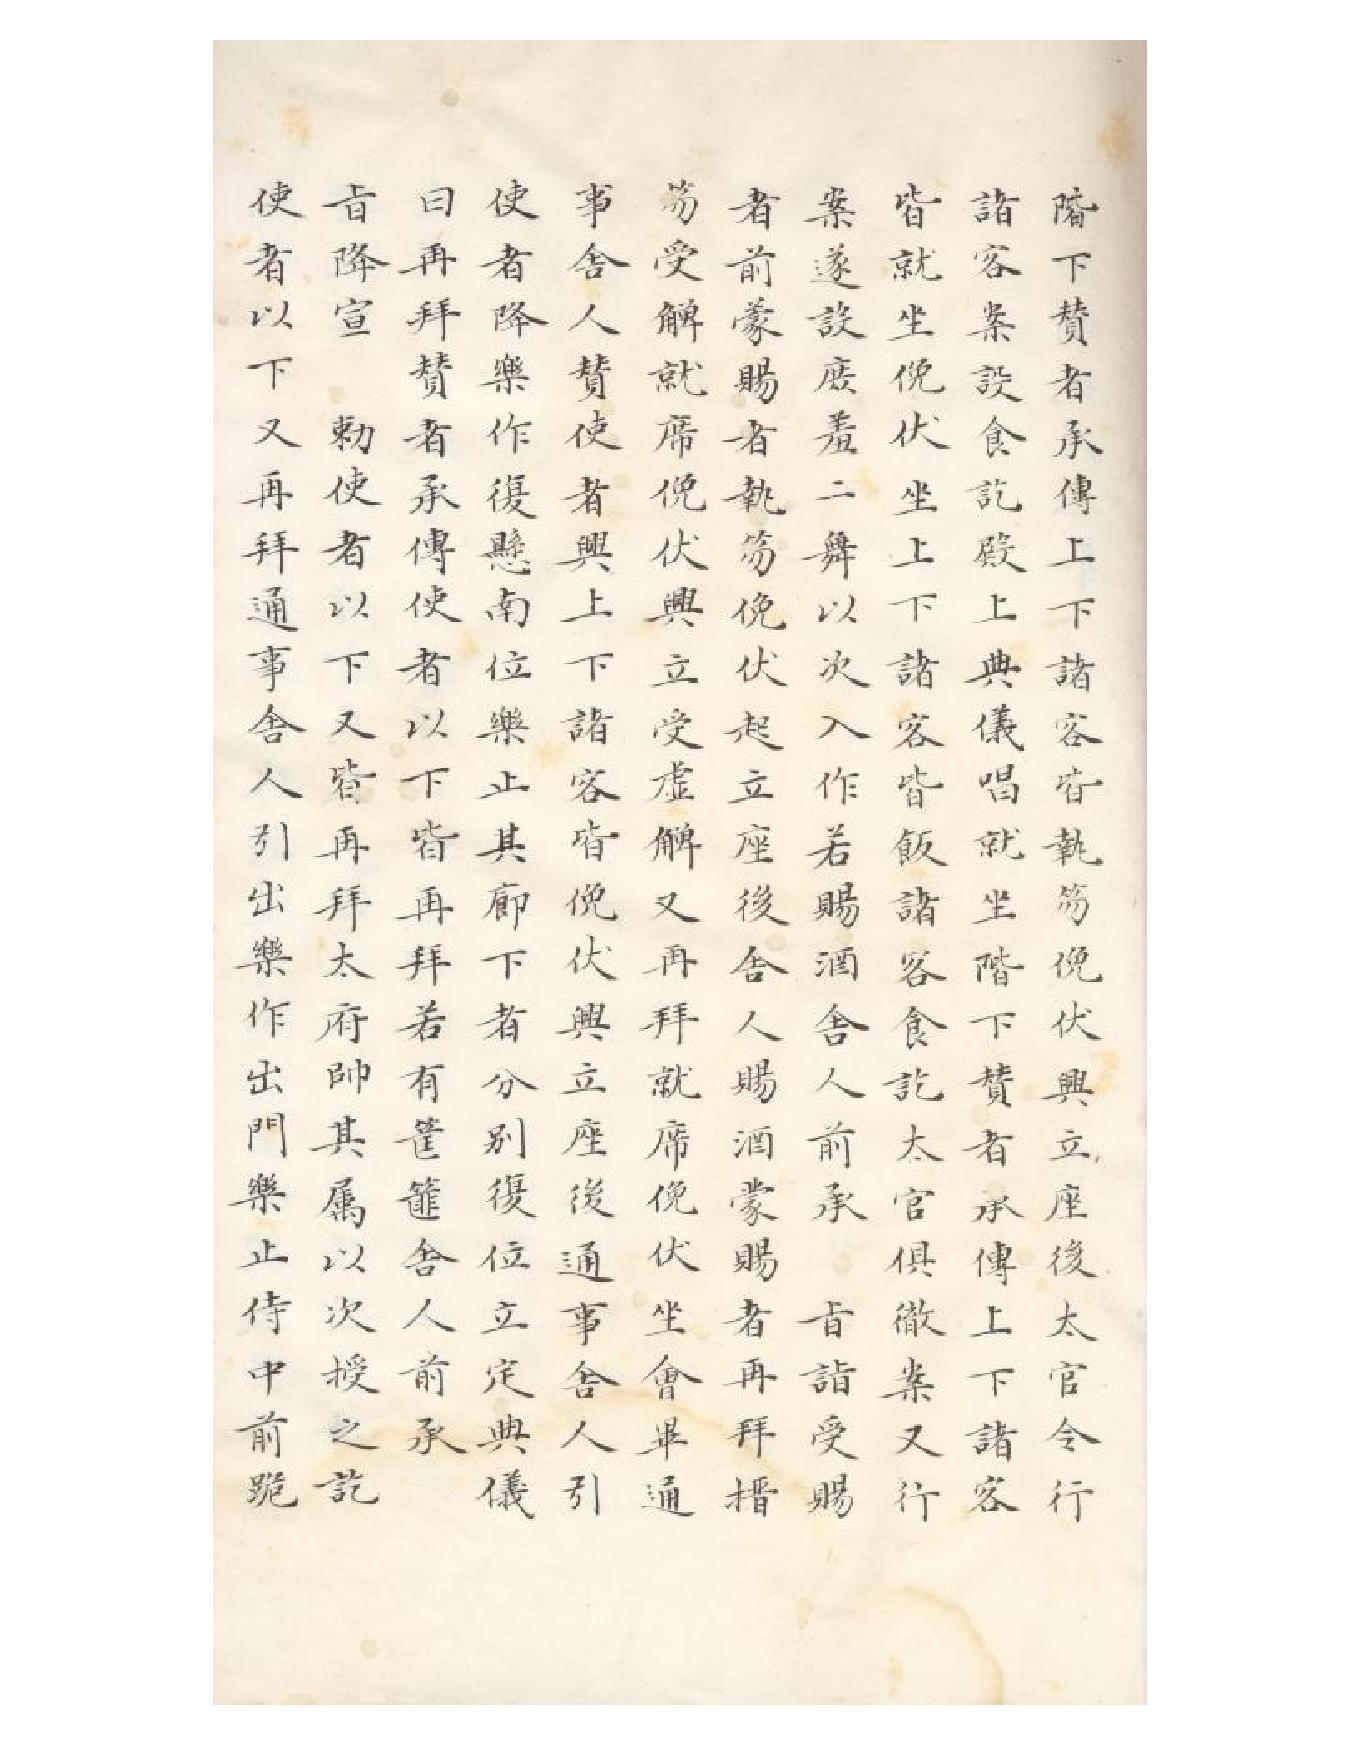 階下賛者承傳上下諸客皆執笏俛伏興立座後太官令行
諸客案設食訖殿上典儀唱就坐階下賛者承傳上下諸客
皆就坐俛伏坐上下諸客皆飯諸客食訖太官俱徹案又行
案遂設庶羞二舞以次入作若賜酒舍人前承　旨詣受賜
者前蒙賜者執笏俛伏起立座後舍人賜酒蒙賜者再拜搢
笏受觶就席俛伏興立受虛觶又再拜就席俛伏坐會畢通
事舍人賛使者興上下諸客皆俛伏興立座後通事舍人引
使者降樂作復懸南位樂止其廊下者分別復位立定典儀
曰再拜賛者承傳使者以下皆再拜若有筐篚舍人前承
旨降宣　勅使者以下又皆再拜太府帥其屬以次授之訖
使者以下又再拜通事舍人引出樂作出門樂止侍中前跪